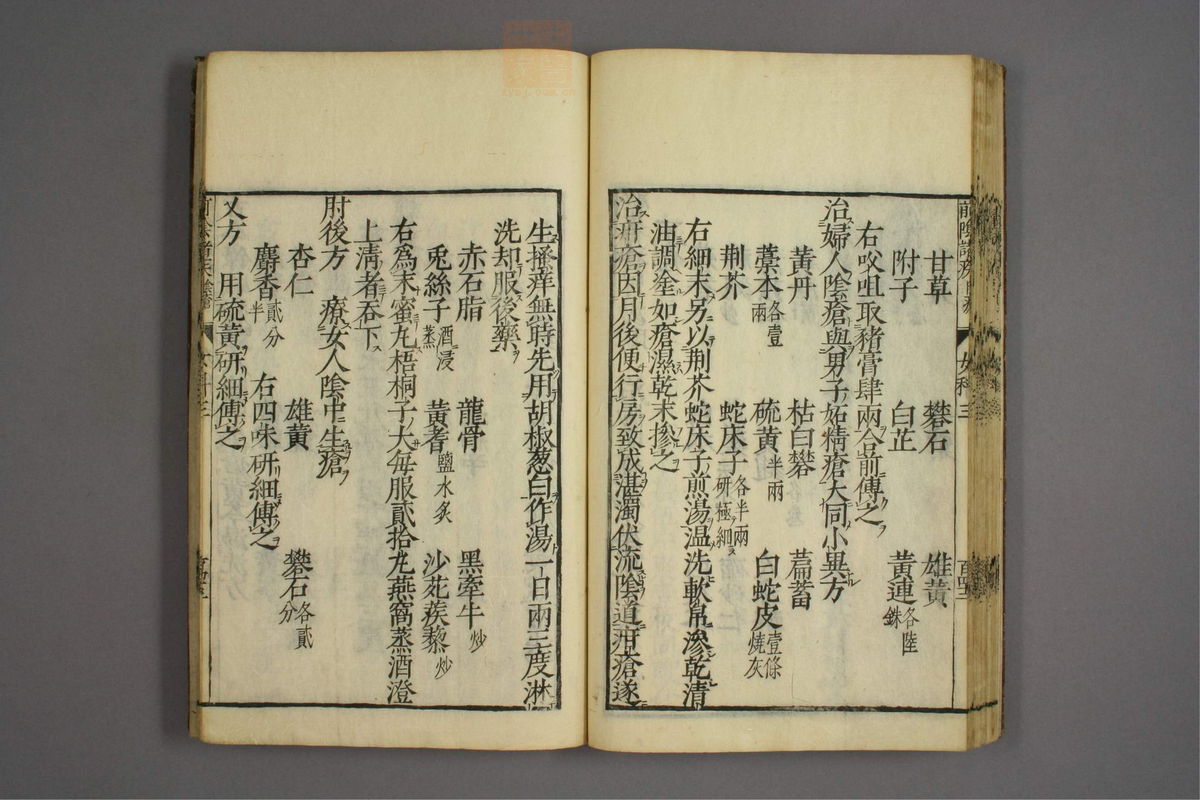 甘草 礬石 雄黃
附子 白芷 黃連各陸銖
右㕮咀取猪膏肆兩合煎傅之
治婦人陰瘡與男子妬精瘡大同小異方
黃丹 枯白礬 萹蓄
藁本各壹兩 硫黃半兩 白蛇皮壹條燒灰
荆芥 蛇床子各半兩研極細
右細末另以荆芥蛇床子煎湯温洗軟帛滲乾清
油調塗如瘡濕乾末摻之
治疳瘡因月後便行房致成湛濁伏流陰道疳瘡遂
生搔痒無時先用胡椒葱白作湯一日兩三度淋
洗却服後藥
赤石脂 龍骨 黑牽牛炒
兎絲子酒浸蒸 黃耆鹽水炙 沙苑蒺藜炒
右爲末蜜丸梧桐子大每服貳拾丸燕窩蒸酒澄
上淸者吞下
肘後方 療女人陰中生瘡
杏仁 雄黃 礬石各貳分
麝香貳分半 右四味研細傅之
又方 用硫黃研細傅之
女科三